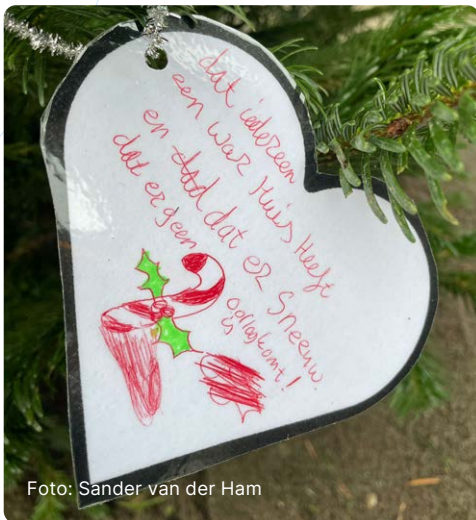 dat iedereen
een war Huis Heeft
en dat er Sneeuw.
dat er geen
oorlog komt!
is
Foto: Sander van der Ham